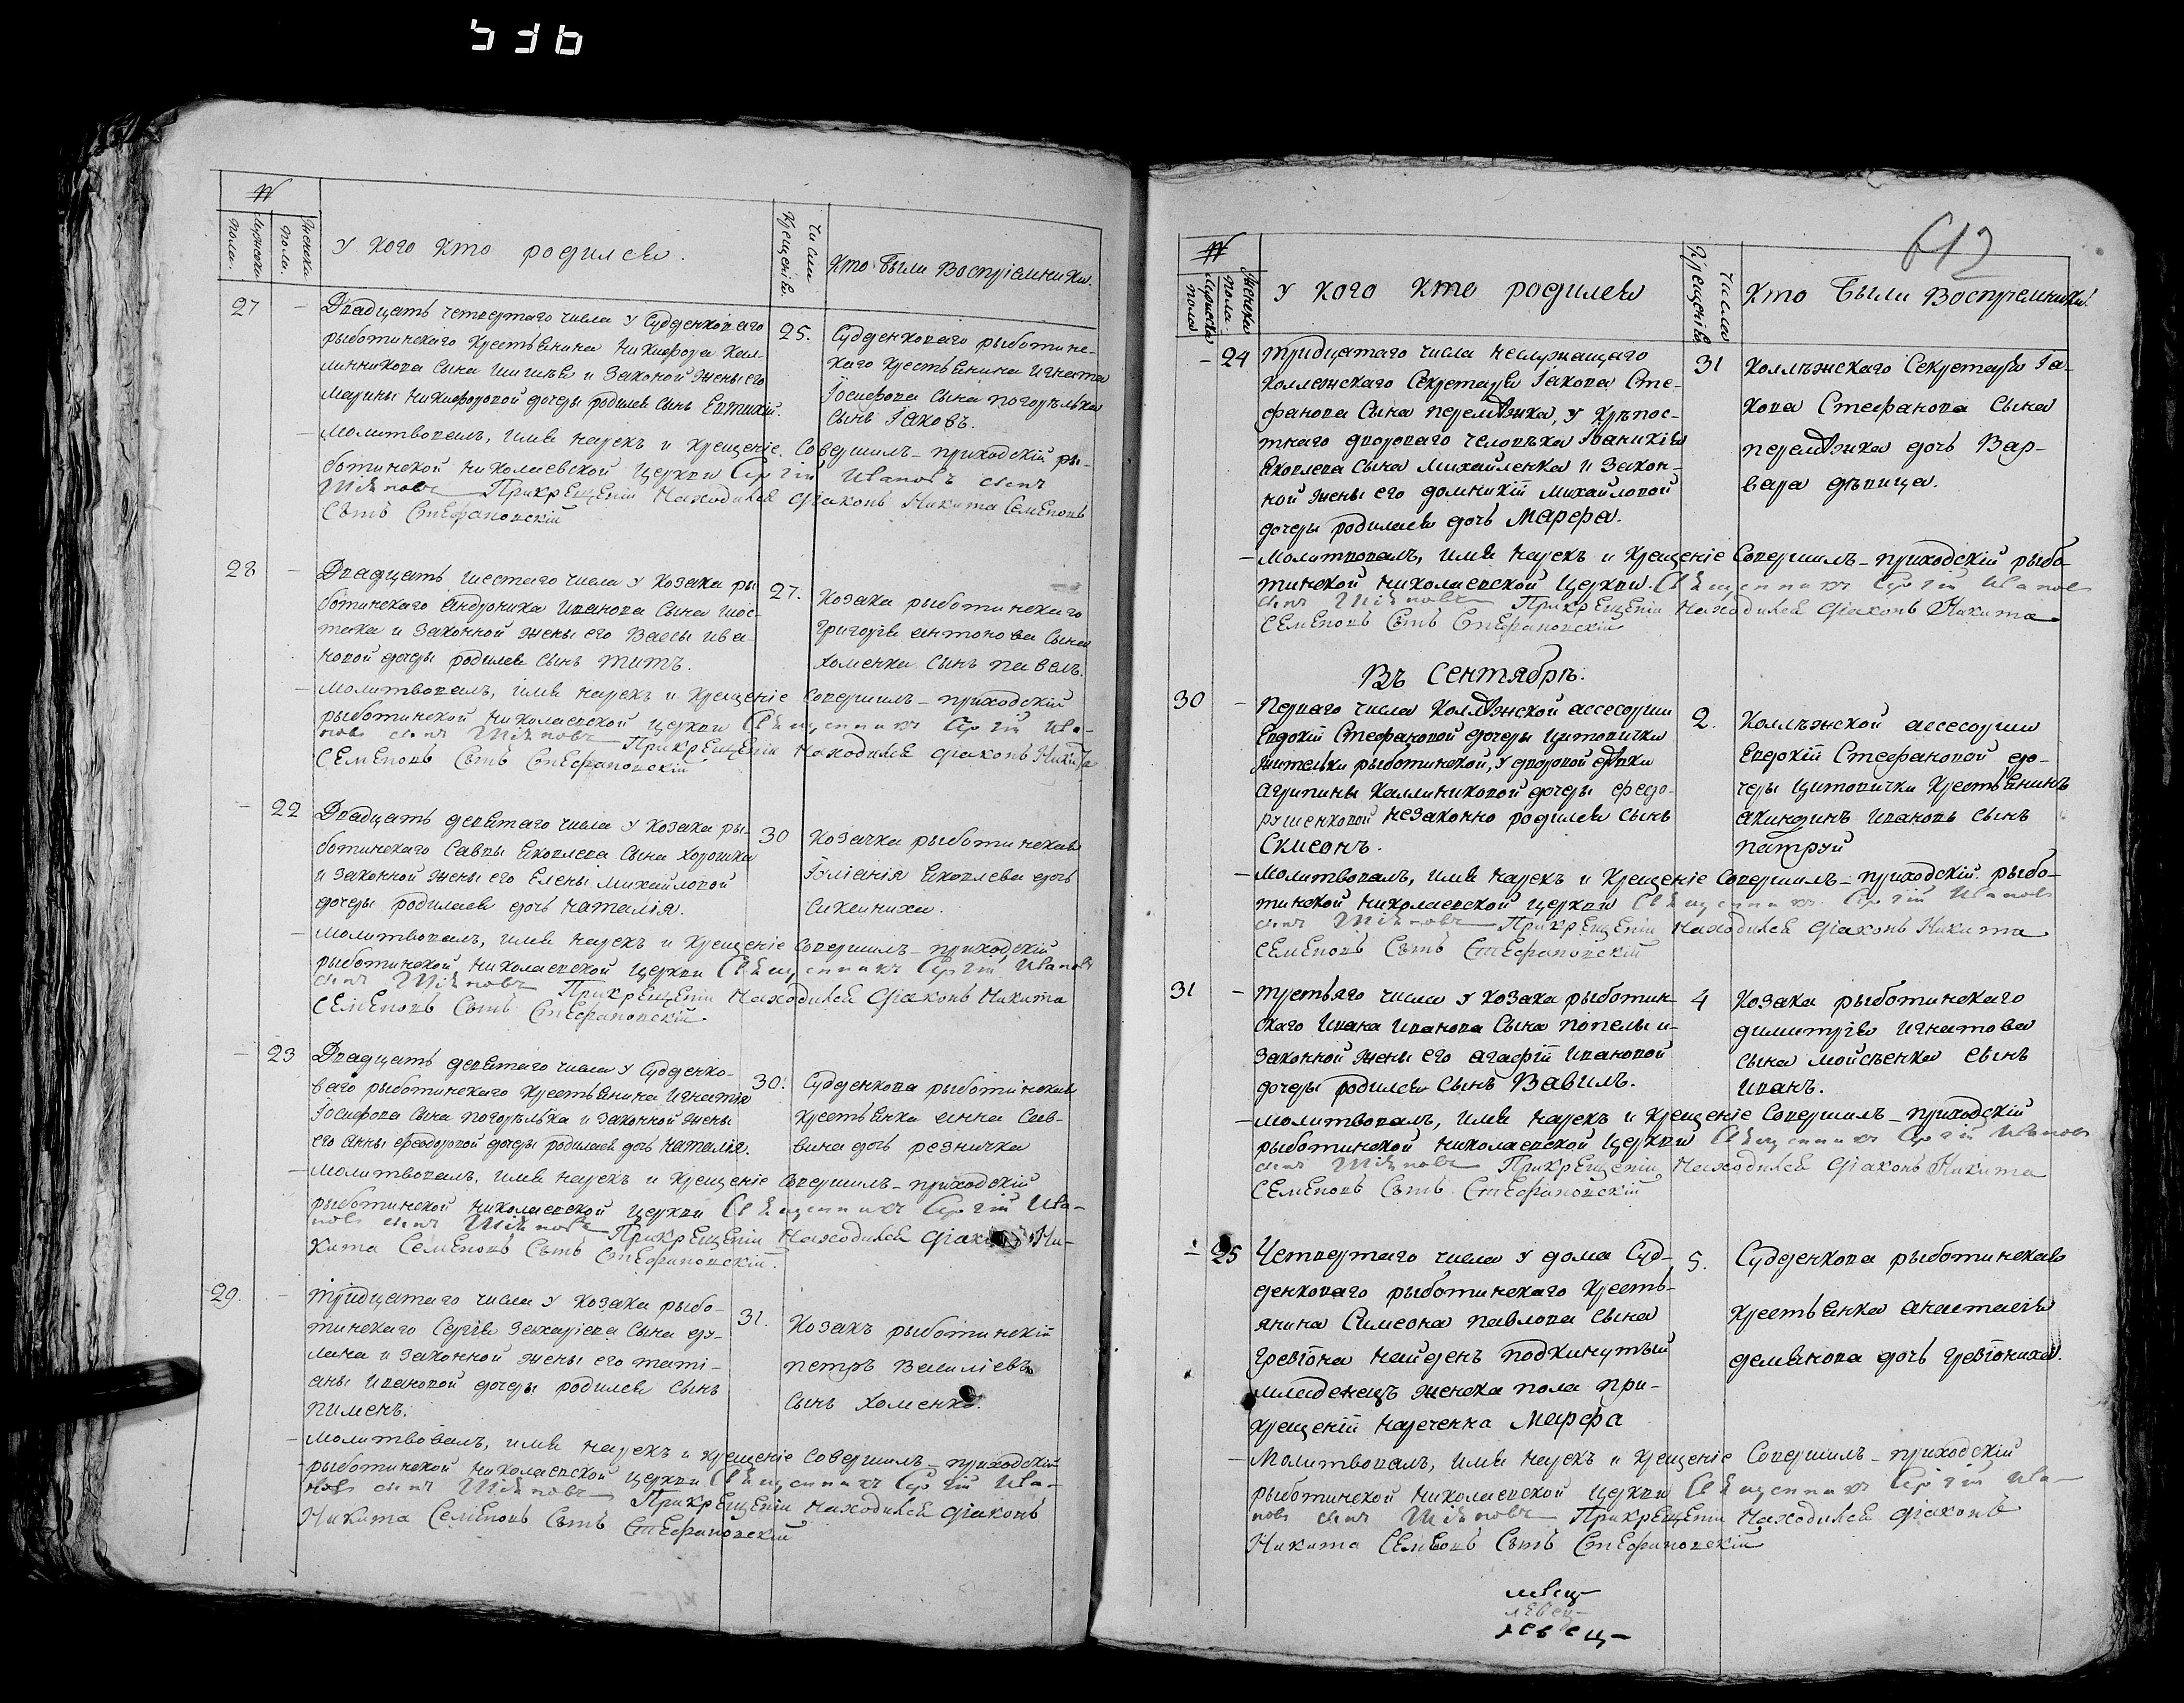 №
Мужеска пола.
Женска пола.
У кого кто родился.
Числа Крещенія.
Кто были Воспріемники.
27 –
Двадцать четвертаго числа у Судденковаго
рыботинскаго крестьянина Никифора Кал-
линикова сына и законой жены его
Марины Никифоровой дочеры родился сынъ Евтихій.
25.
Судденковаго рыботинс-
каго крестьянина Игната
Іосифова сына Погорѣлька
сынъ Іаковъ.
– Молитвовалъ, имя нарекъ и крещеніе совершилъ – приходскій ры-
ботинской Николаевской церкви Сергій Ивановъ сынъ
Прикрещеніи находился діаконъ Никита Семеновъ
Сынъ Стефановскій
28 –
Двадцать шестаго числа у козака ры-
ботинскаго Андроника Иванова сына Шос-
така и законной жены его Вассы Ива-
новой дочеры родился сынъ Титъ.
27.
Козака рыботинскаго
Григорія Антонова сына
Хоменка сынъ Павелъ.
– Молитвовалъ, имя нарекъ и крещеніе совершилъ – приходскій
рыботинской Николаевской церкви Священникъ Сергій Ива-
новъ сынъ Прикрещеніи находился діаконъ Никита
Семеновъ Сынъ Стефановскій
– 22
Двадцать девятаго числа у козака ры-
ботинскаго Саввы Яковлева сына Хорошка
и законной жены его Елены Михайловой
дочеры родилася дочь Наталія.
30
Козачка рыботинская
Іуліанія Яковлева дочь
– Молитвовалъ, имя нарекъ и крещеніе совершилъ – приходскій
рыботинской Николаевской церкви Священникъ Сергій Ивановъ
сынъ Прикрещеніи находился діаконъ Никита
Семеновъ Сынъ Стефановскій
– 23
Двадцать девятаго числа у Судденко-
ваго рыботинскаго крестьянина Игнатія
Іосифова сына Погорѣлька и законной жены
его Анны Феодоровой дочеры родилася дочь Наталія.
30.
Судденкова рыботинская
крестьянка Анна Сав-
вина дочь Резничка
– Молитвовалъ, имя нарекъ и крещеніе совершилъ – приходскій
рыботинской Николаевской церкви Священникъ Сергій Ива-
новъ сынъ Прикрещеніи находился діаконъ Ни-
кита Семеновъ Сынъ Стефановскій.
29. –
Тридцатаго числа у козака рыбо-
тинскаго Сергія Захаріева сына Ду-
лана и законной жены его Таті-
аны Ивановой дочеры родился сынъ
Пименъ.
31.
Козакъ рыботинскій
Петръ Василіевъ
сынъ Хоменко.
– Молитвовалъ, имя нарекъ и крещеніе совершилъ – приходскій
рыботинской Николаевской церкви Священникъ Сергій Ива-
новъ сынъ Прикрещеніи находился діаконъ
Никита Семеновъ Сынъ Стефановскій
612
№
Мужеска пола
Женска пола.
У кого кто родился
Числа Крещенія
Кто были Воспріемники.
– 24
Тридцатаго числа неслужащаго
Коллежскаго Секретаря Іакова Сте-
фанова сына Перемѣжка, у крѣпос-
тнаго двороваго человѣка Іоаникія
Яковлева сына Михайленка и закон-
ной жены его Домникіи Михайловой
дочеры родилася дочь Марфа.
31
Коллѣжскаго Секретаря Іа-
кова Стефанова сына
Перемѣжка дочь Вар-
вара дѣвица.
– Молитвовалъ, имя нарекъ и крещеніе совершилъ – приходскій рыбо-
тинской Николаевской церкви. Священникъ Сергій Ивановъ
сынъ Прикрещеніи находился діаконъ Никита
Семеновъ Сынъ Стефановскій
Въ Сентябрѣ.
30 –
Перваго числа Коллѣжской ассесорши
Евдокіи Стефановой дочеры Цитовички
жительки рыботинской, у дворовой дѣвки
Агрипины Каллиниковой дочеры Федо-
рушенковой незаконно родился сынъ
Симеонъ.
2.
Коллѣжской ассесорши
Евдокіи Стефановой до-
черы Цитовички крестьянинъ
Акиндинъ Ивановъ сынъ
Патруй
– Молитвовалъ, имя нарекъ и крещеніе совершилъ – приходскій рыбо-
тинской Николаевской церкви Священникъ Сергій Ивановъ
сынъ Прикрещеніи находился діаконъ Никита
Семеновъ Сынъ Стефановскій
31 –
Третьяго числа у козака рыботин-
скаго Ивана Иванова сына Попелы и
законной жены его Агафіи Ивановой
дочеры родился сынъ Вавилъ.
4
Козака рыботинскаго
Димитрія Игнатова
сына Мойсѣенка сынъ
Иванъ.
– Молитвовалъ, имя нарекъ и крещеніе совершилъ – приходскій
рыботинской Николаевской церкви Священникъ Сергій Ивановъ
сынъ Прикрещеніи находился діаконъ Никита
Семеновъ Сынъ Стефановскій
– 25
Четвертаго числа у дома Суд-
денковаго рыботинскаго кресть-
янина Симеона Павлова сына
Гревіона найденъ подкинутый
младенецъ женска пола при-
крещеніи нареченна Марфа
5.
Судденкова рыботинская
крестьянка Анастасія
Демянова дочь Гревіониха.
– Молитвовалъ, имя нарекъ и крещеніе совершилъ – приходскій
рыботинской Николаевской церкви Священникъ Сергій Ива-
новъ сынъ Прикрещеніи находился діаконъ
Никита Семеновъ Сынъ Стефановскій